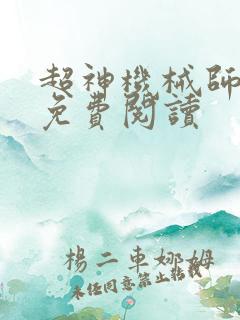 超神機械師
免費閱讀
楊二車娜姆
未任同意禁止轉載